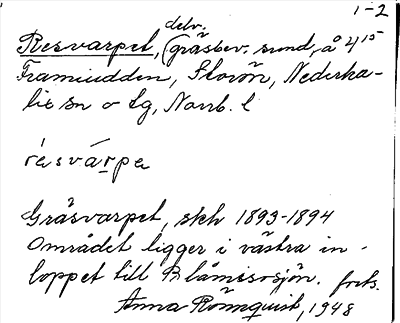 1-2
delv.
Resvarpet, (gräsbev. sund, å 415
Framiudden, Storön, Nederka-
lix sn o lg, Norrb. l
résvárpe
Gräsvarpet, skh 1893-1894
Området ligger i västra in-
loppet till Blåmissjön. forts.
Anna Rönnquist, 1948